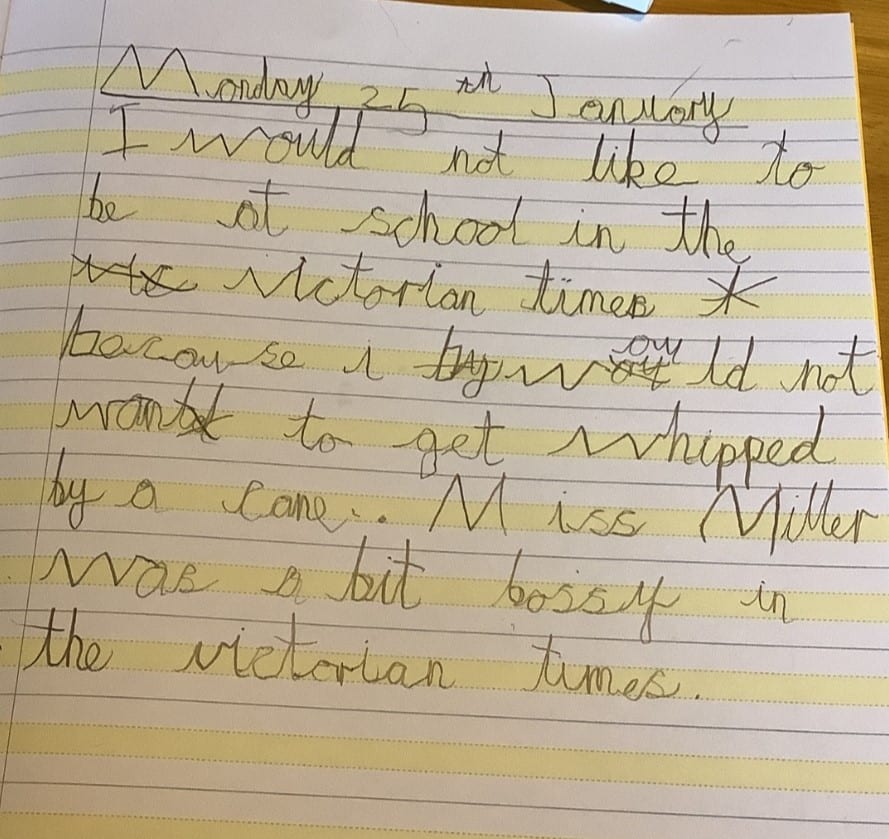 Monday 25th January
I would not like to
be at school in the
victorian times *
because i would not
want to get whipped
by a cane.. Miss Miller
was a bit bossy in
the victorian times.